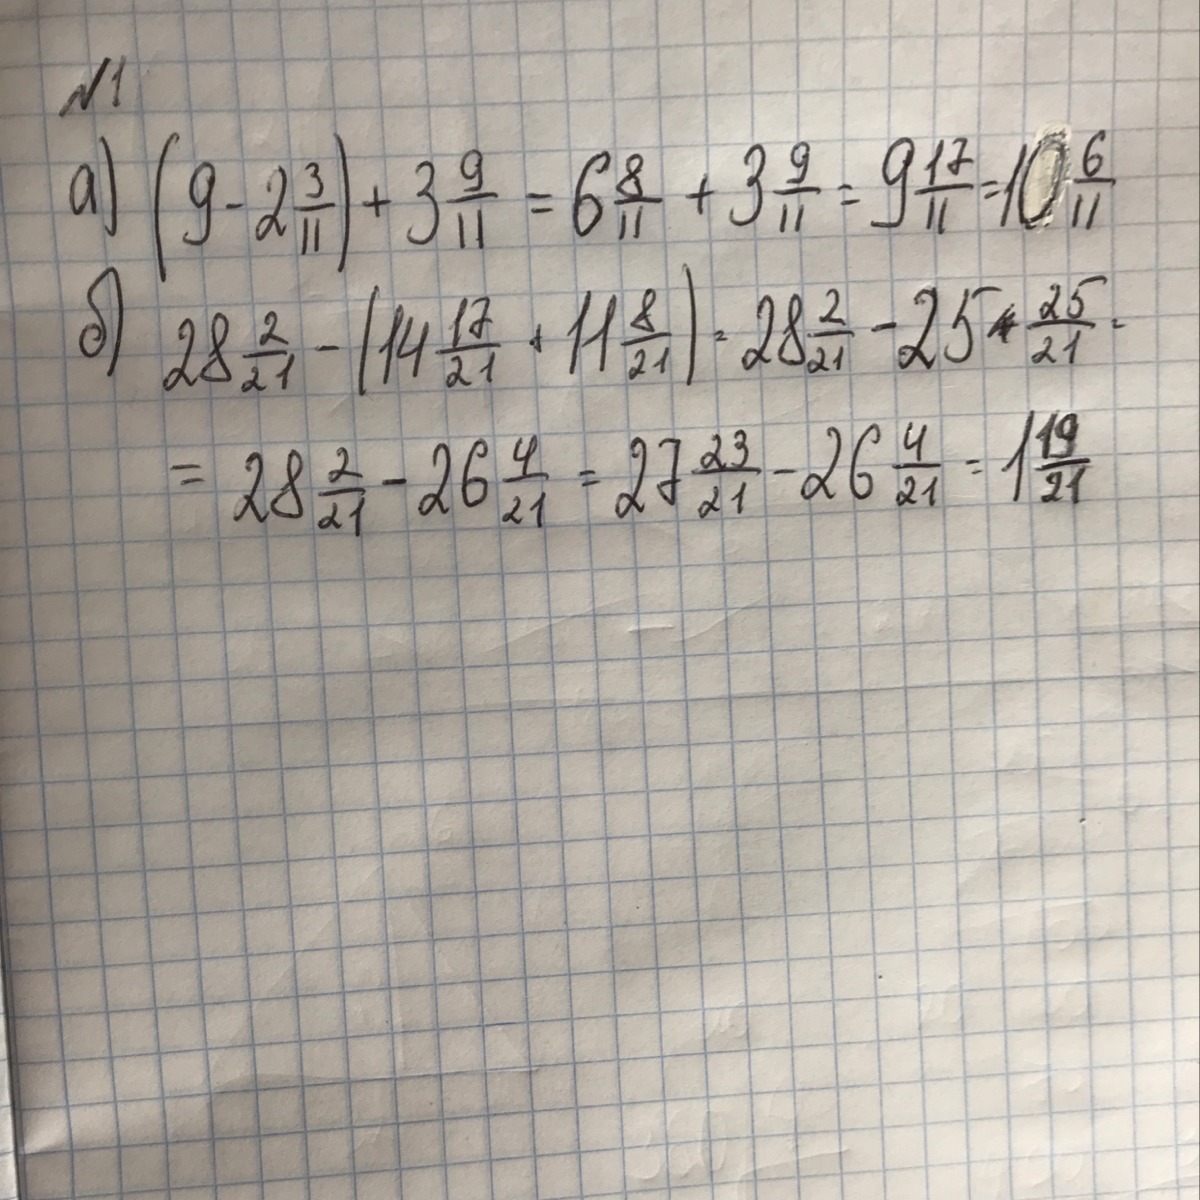 №1
а) (9 - 2 3/11) + 3 9/11 = 6 8/11 + 3 9/11 = 9 17/11 = 10 6/11
б) 28 2/21 - (14 17/21 + 11 8/21) = 28 2/21 - 25 25/21 =
= 28 2/21 - 26 4/21 = 27 23/21 - 26 4/21 = 1 19/21